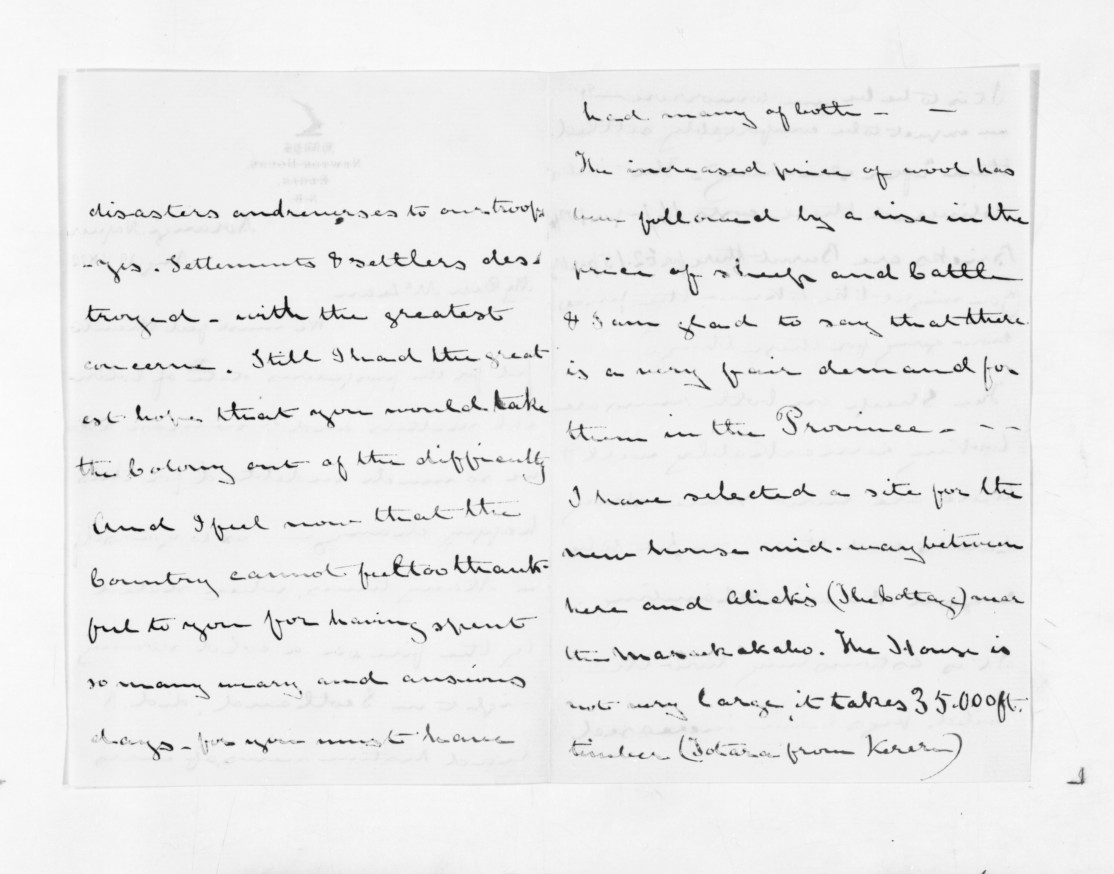 disasters and reverses to our troops
- yes. Settlements & settlers des-
troyed - with the greatest
concern. Still I had the great
est hope that you would take
the Colony out of the difficulty
And I feel now that the
Country cannot feel too thank-
ful to you for having spent
so many weary and anxious
days - for you must have
had many of both - -
The increased price of wool has
been followed by a rise in the
price of sheep and Cattle
& I am glad to say that there
is a very fair demand for
them in the Province - - -
I have selected a site for the
new house mid-way between
here and Alick's (The Cottage) near
the. The House is
not very large, it takes 35.000 ft.
timber (Totara from Kereru)